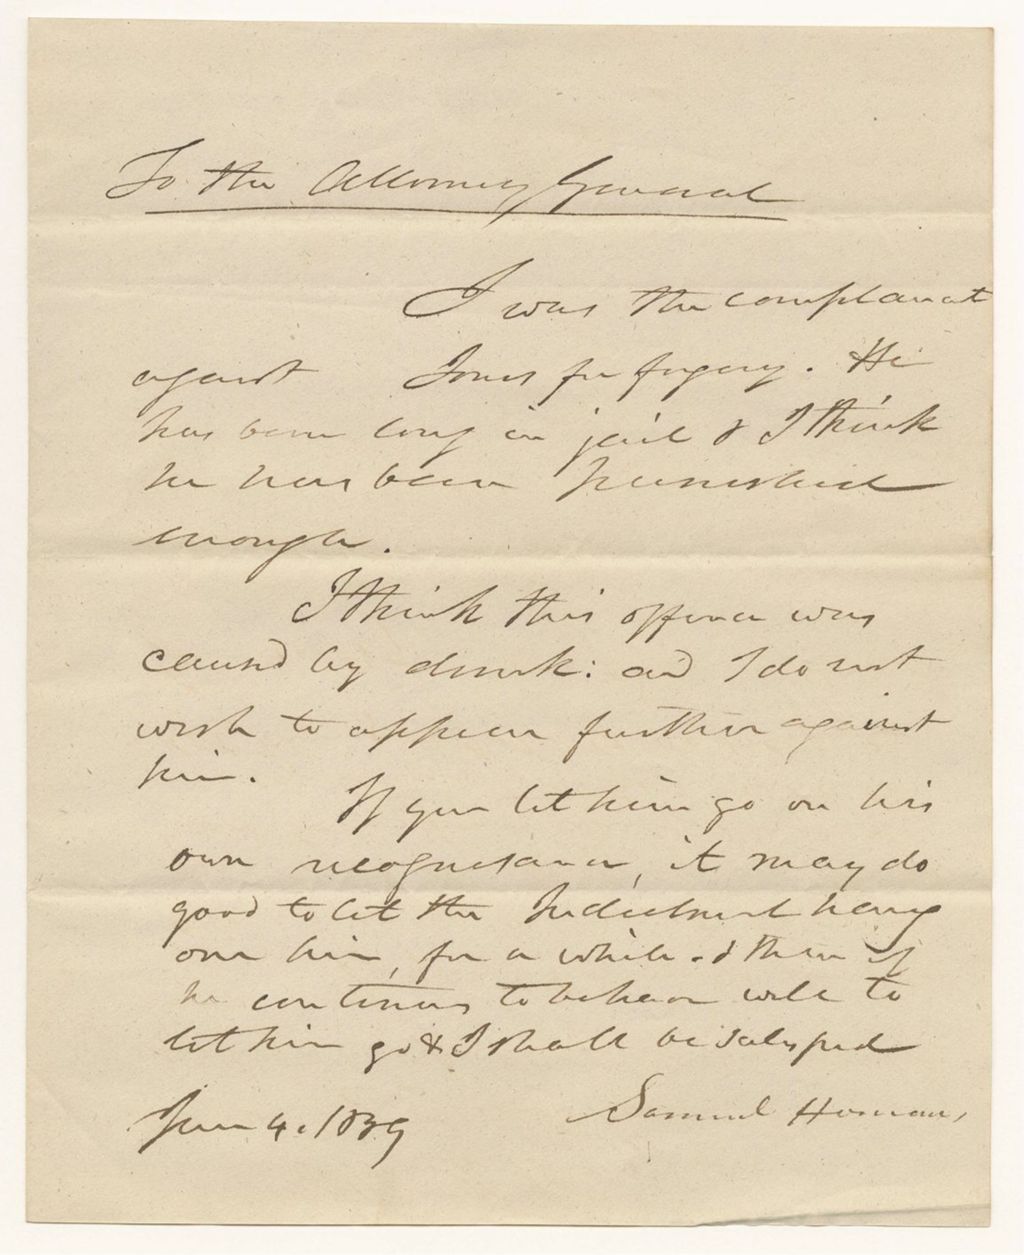 To the Attorney General
I was the complainant
against Jones for forgery. He
has been long in jail & I think
he has been punished
enough.
I think this offence was
caused by drink: and I do not
wish to appear further against
him.
If you let him go on his
own recognizance, it may do
good to let the Indictment hang
over him, for a while - & then if
he continues to behave well to
let him go & I shall be satisfied
June 4. 1839 Samuel